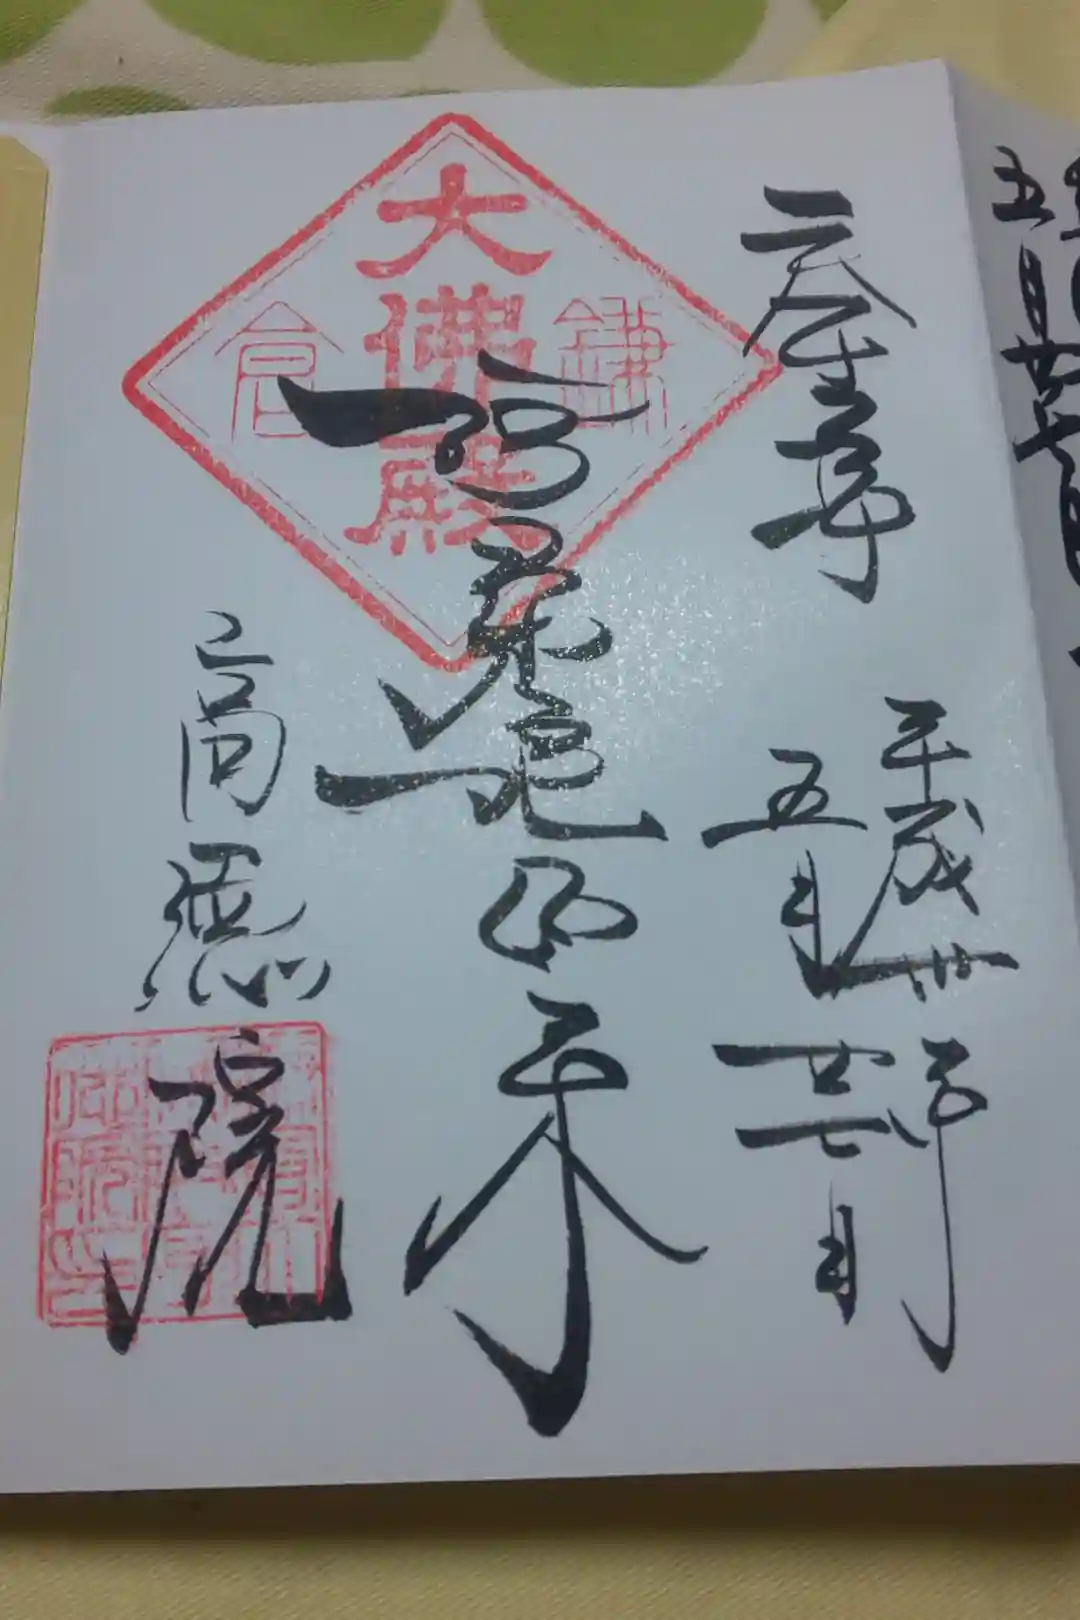 奉拝
平成卅年
五月廿七日
大佛殿
鎌倉
阿弥陀如来
高徳院